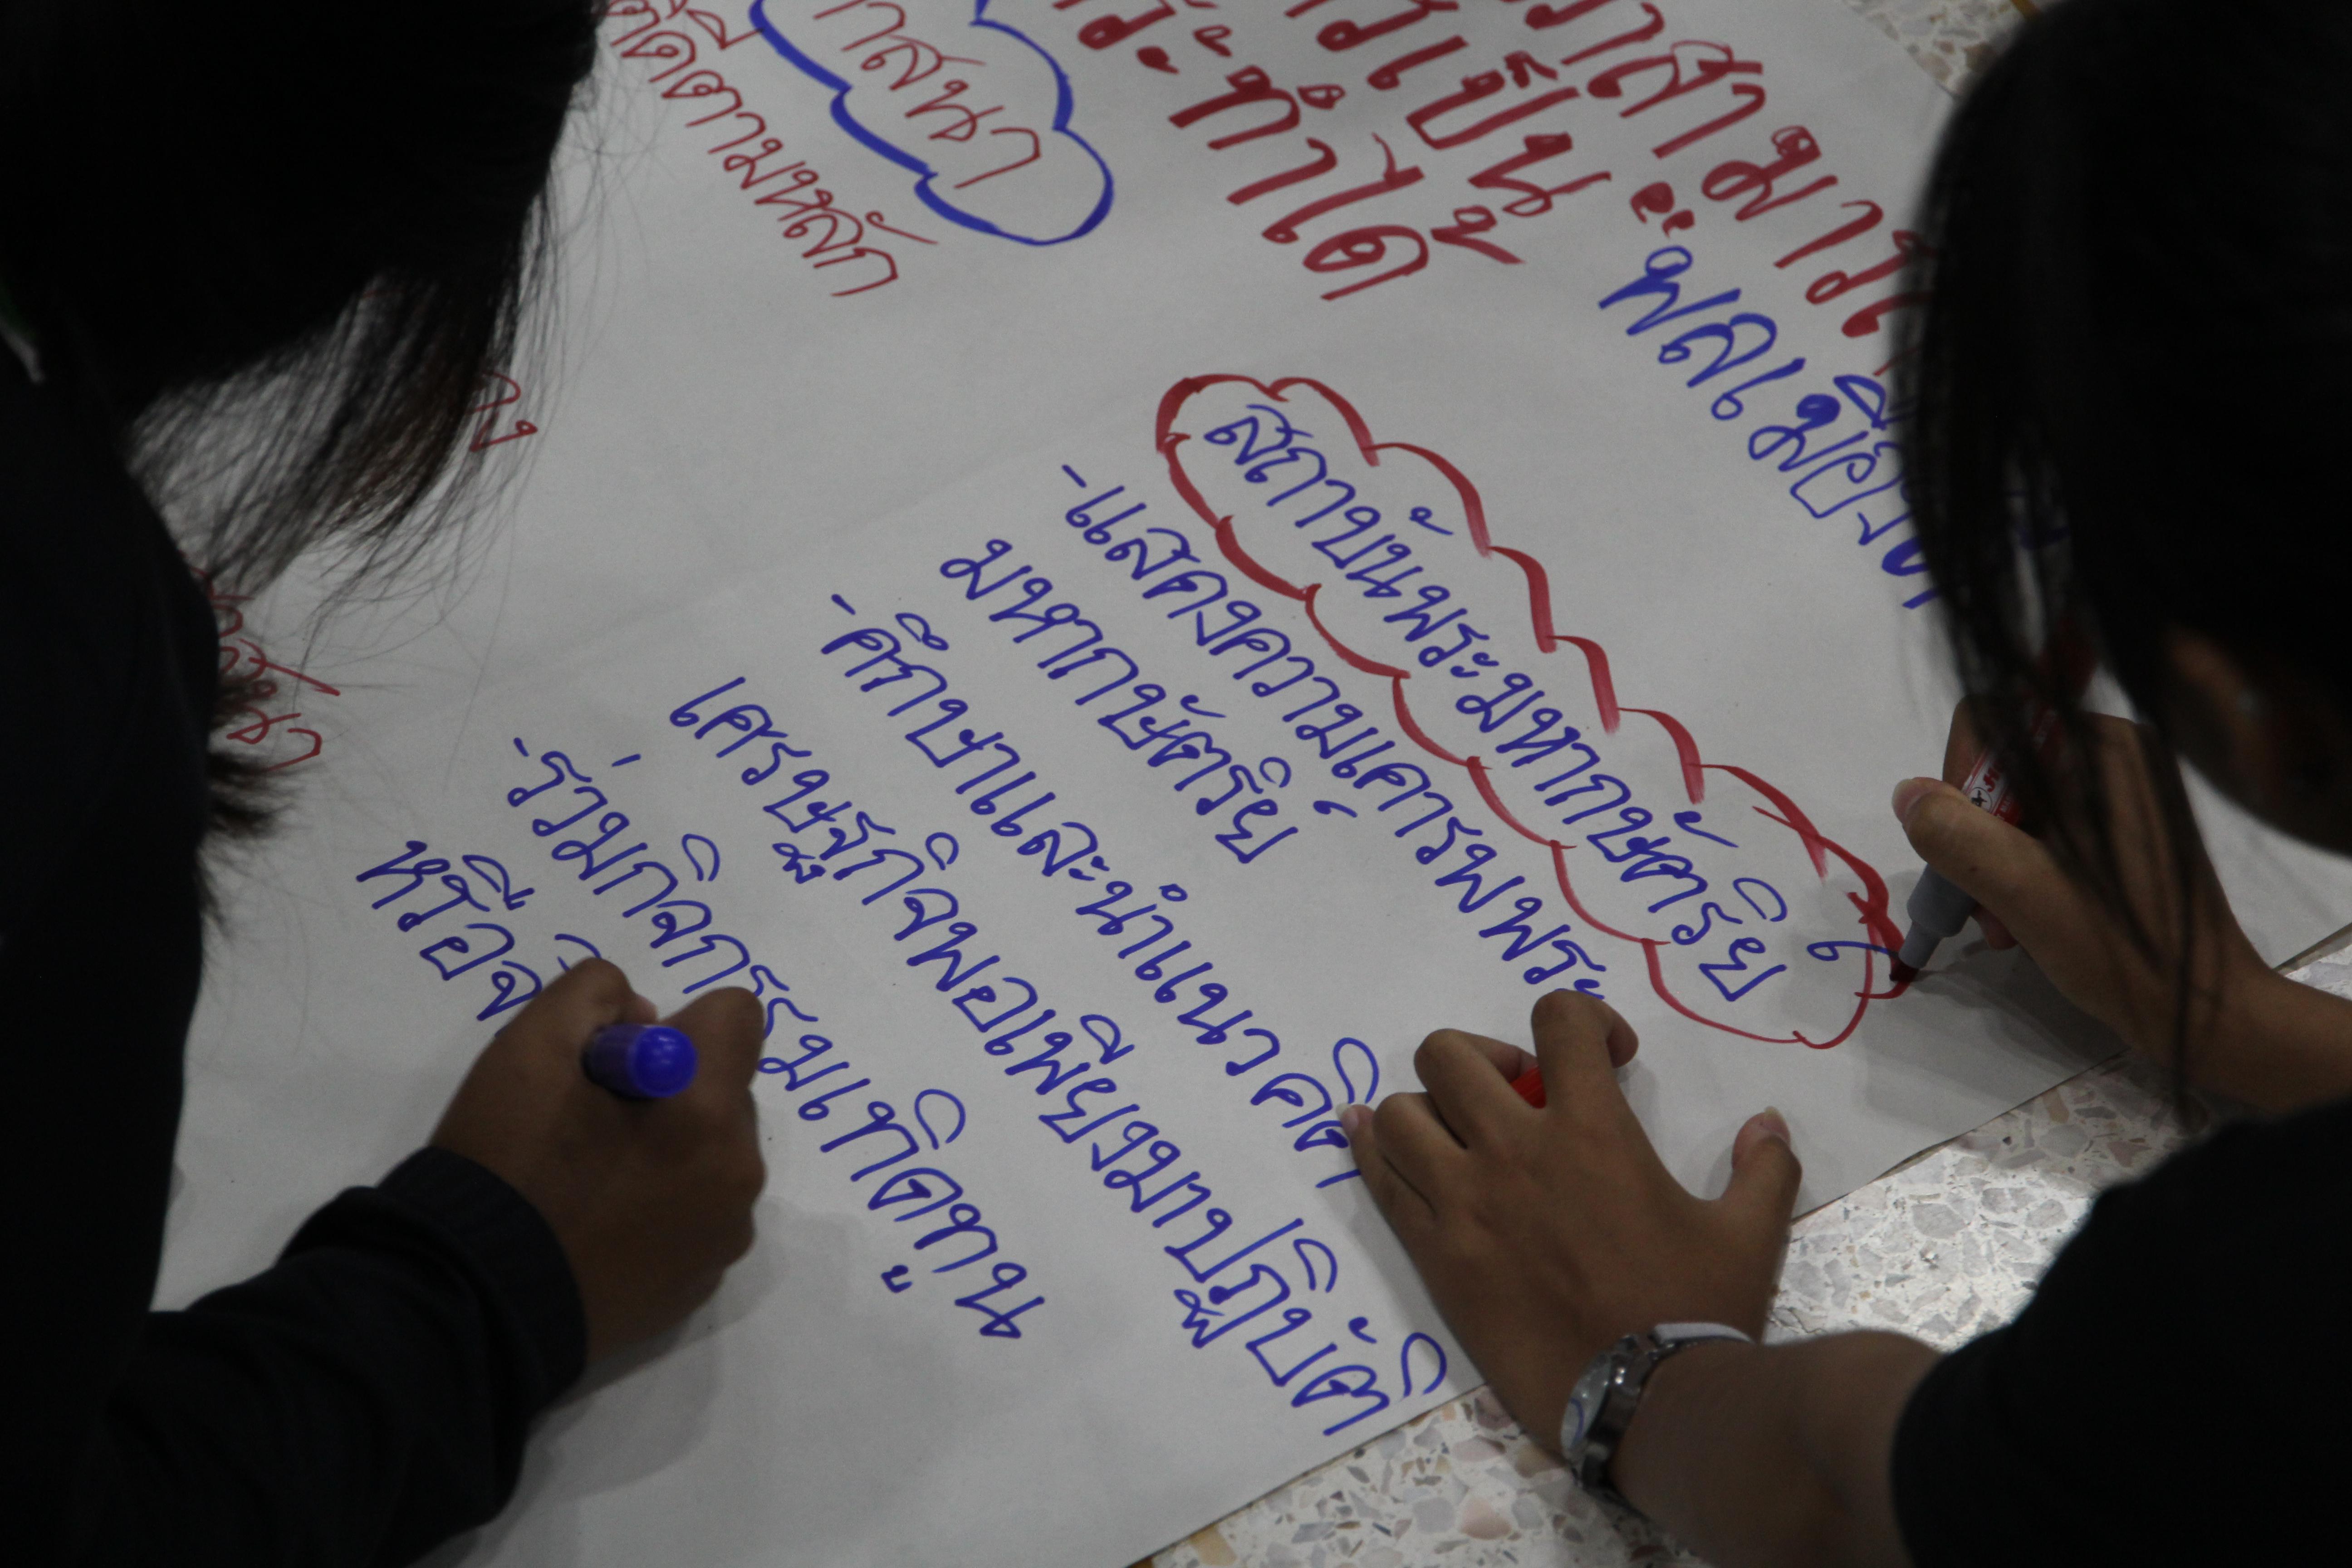 สามาร
ารเป็น พลเมือง
ระทำได้
าสนา
ตามหลัก
สถาบันพระมหากษัตริย์
-แสดงความเคารพพระ
มหากษัตริย์
-ศึกษาและนำแนวคิด
เศรษฐกิจพอเพียงมาปฏิบัติ
-ร่วมกิจกรรมเทิดทูน
หรือจ